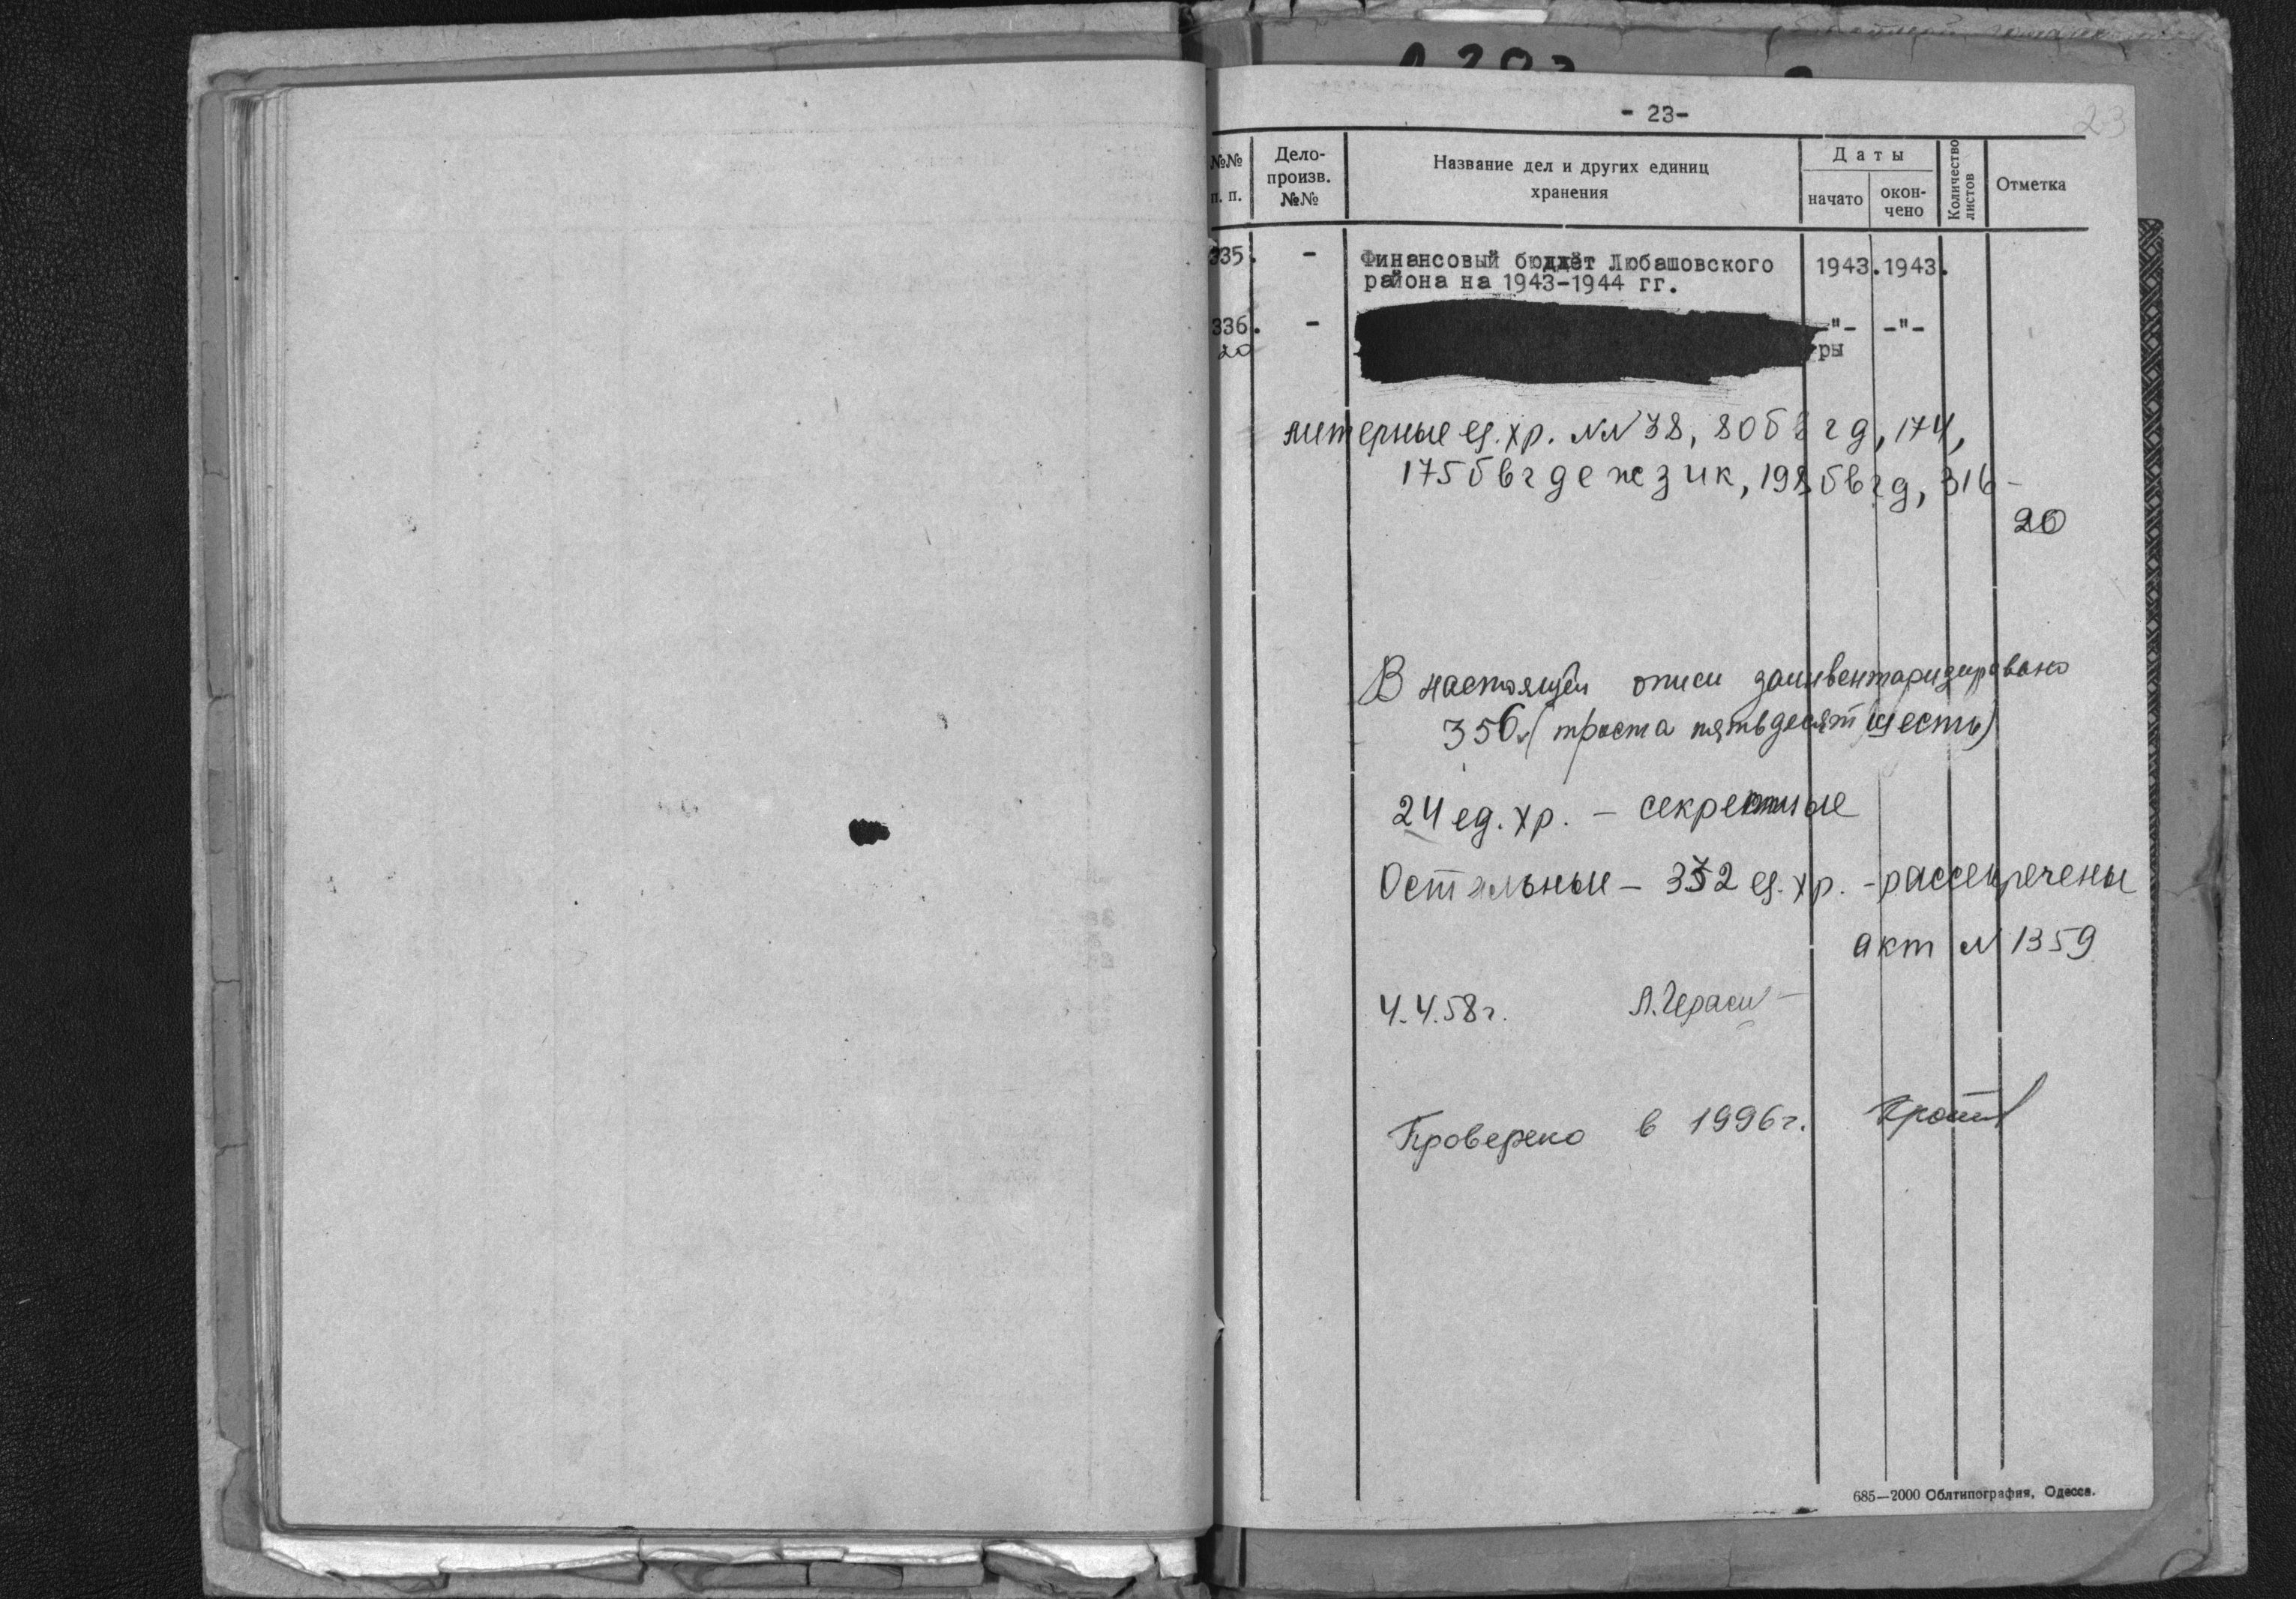 - 23-
23
№№ п. п.
Дело-произв. №№
Название дел и других единиц хранения
Даты
начато
окон-чено
Количество листов
Отметка
335. - Финансовый бюджёт Любашовского 1943. 1943.
района на 1943-1944 гг.
336. - -"- -"-
20 ры
литерные ед. хр. №№ 38, 80б в г д, 174,
175 б в г д е ж з и к, 198 б в г д, 316 -
20
В настоящей описи заинвентаризировано
356 (триста пятьдесят шесть)
24 ед. хр. - секретные
Остальные - 332 ед. хр. - рассекречены
акт № 1359
4.4.58г.
Проверено в 1996г.
685—2000 Облтипография, Одесса.